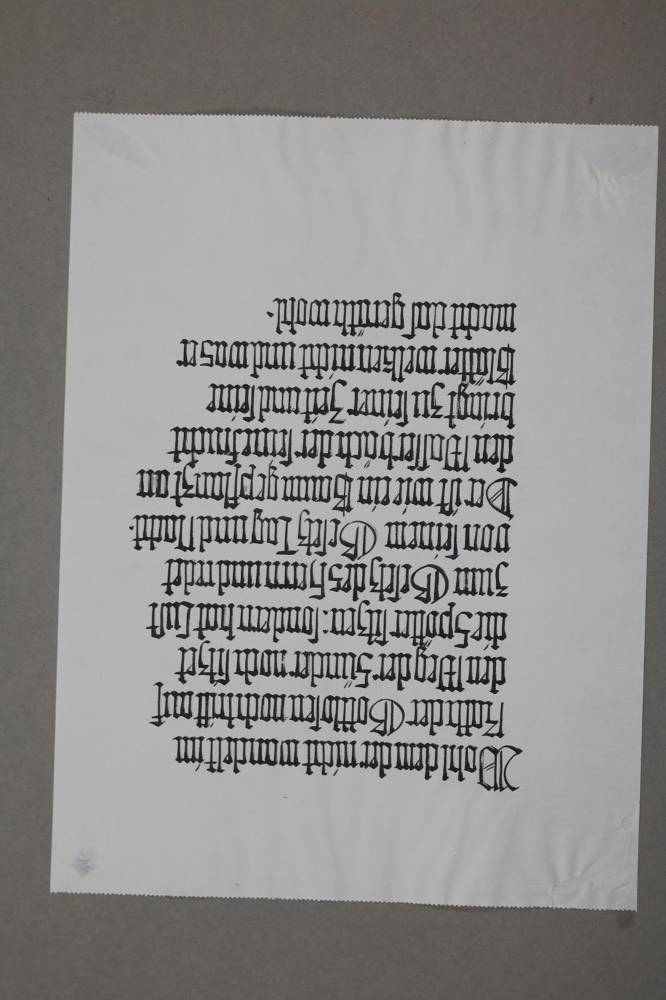 Wohl dem der nicht wandelt im
Rath der Gottlosen noch tritt auf
den Weg der Sünder noch sitzet
die Spötter sitzen: sondern hat Lust
zum Gesetz des Herrn und redet
von seinem Gesetz Tag und Nacht.
Der ist wie ein Baum gepflanzt an
den Wasserbäch der seine Frucht
bringt zu seiner Zeit und seine
Blätter welken nicht und was er
macht das geräth wohl.